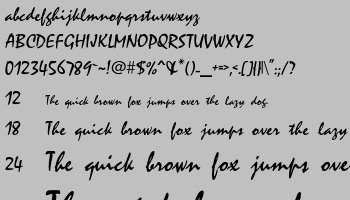 abcdefghijklmnopqrstuvwxyz
ABCDEFGHIJKLMNOPQRSTUVWXYZ
0123456789~-!@#$%^&*()-_+=>,<.{}[]|\":;/?
12 The quick brown fox jumps over the lazy dog.
18 The quick brown fox jumps over the lazy
24 The quick brown fox jumps ove